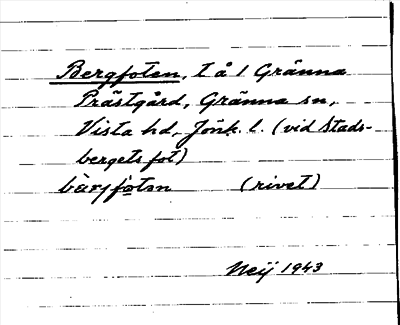 Bergfoten, t å 1 Gränna
Prästgård, Gränna sn,
Vista hd, Jönk. l. (vid Stads-
bergets fot)
bàrjfòtən (rivet)
Neij 1943